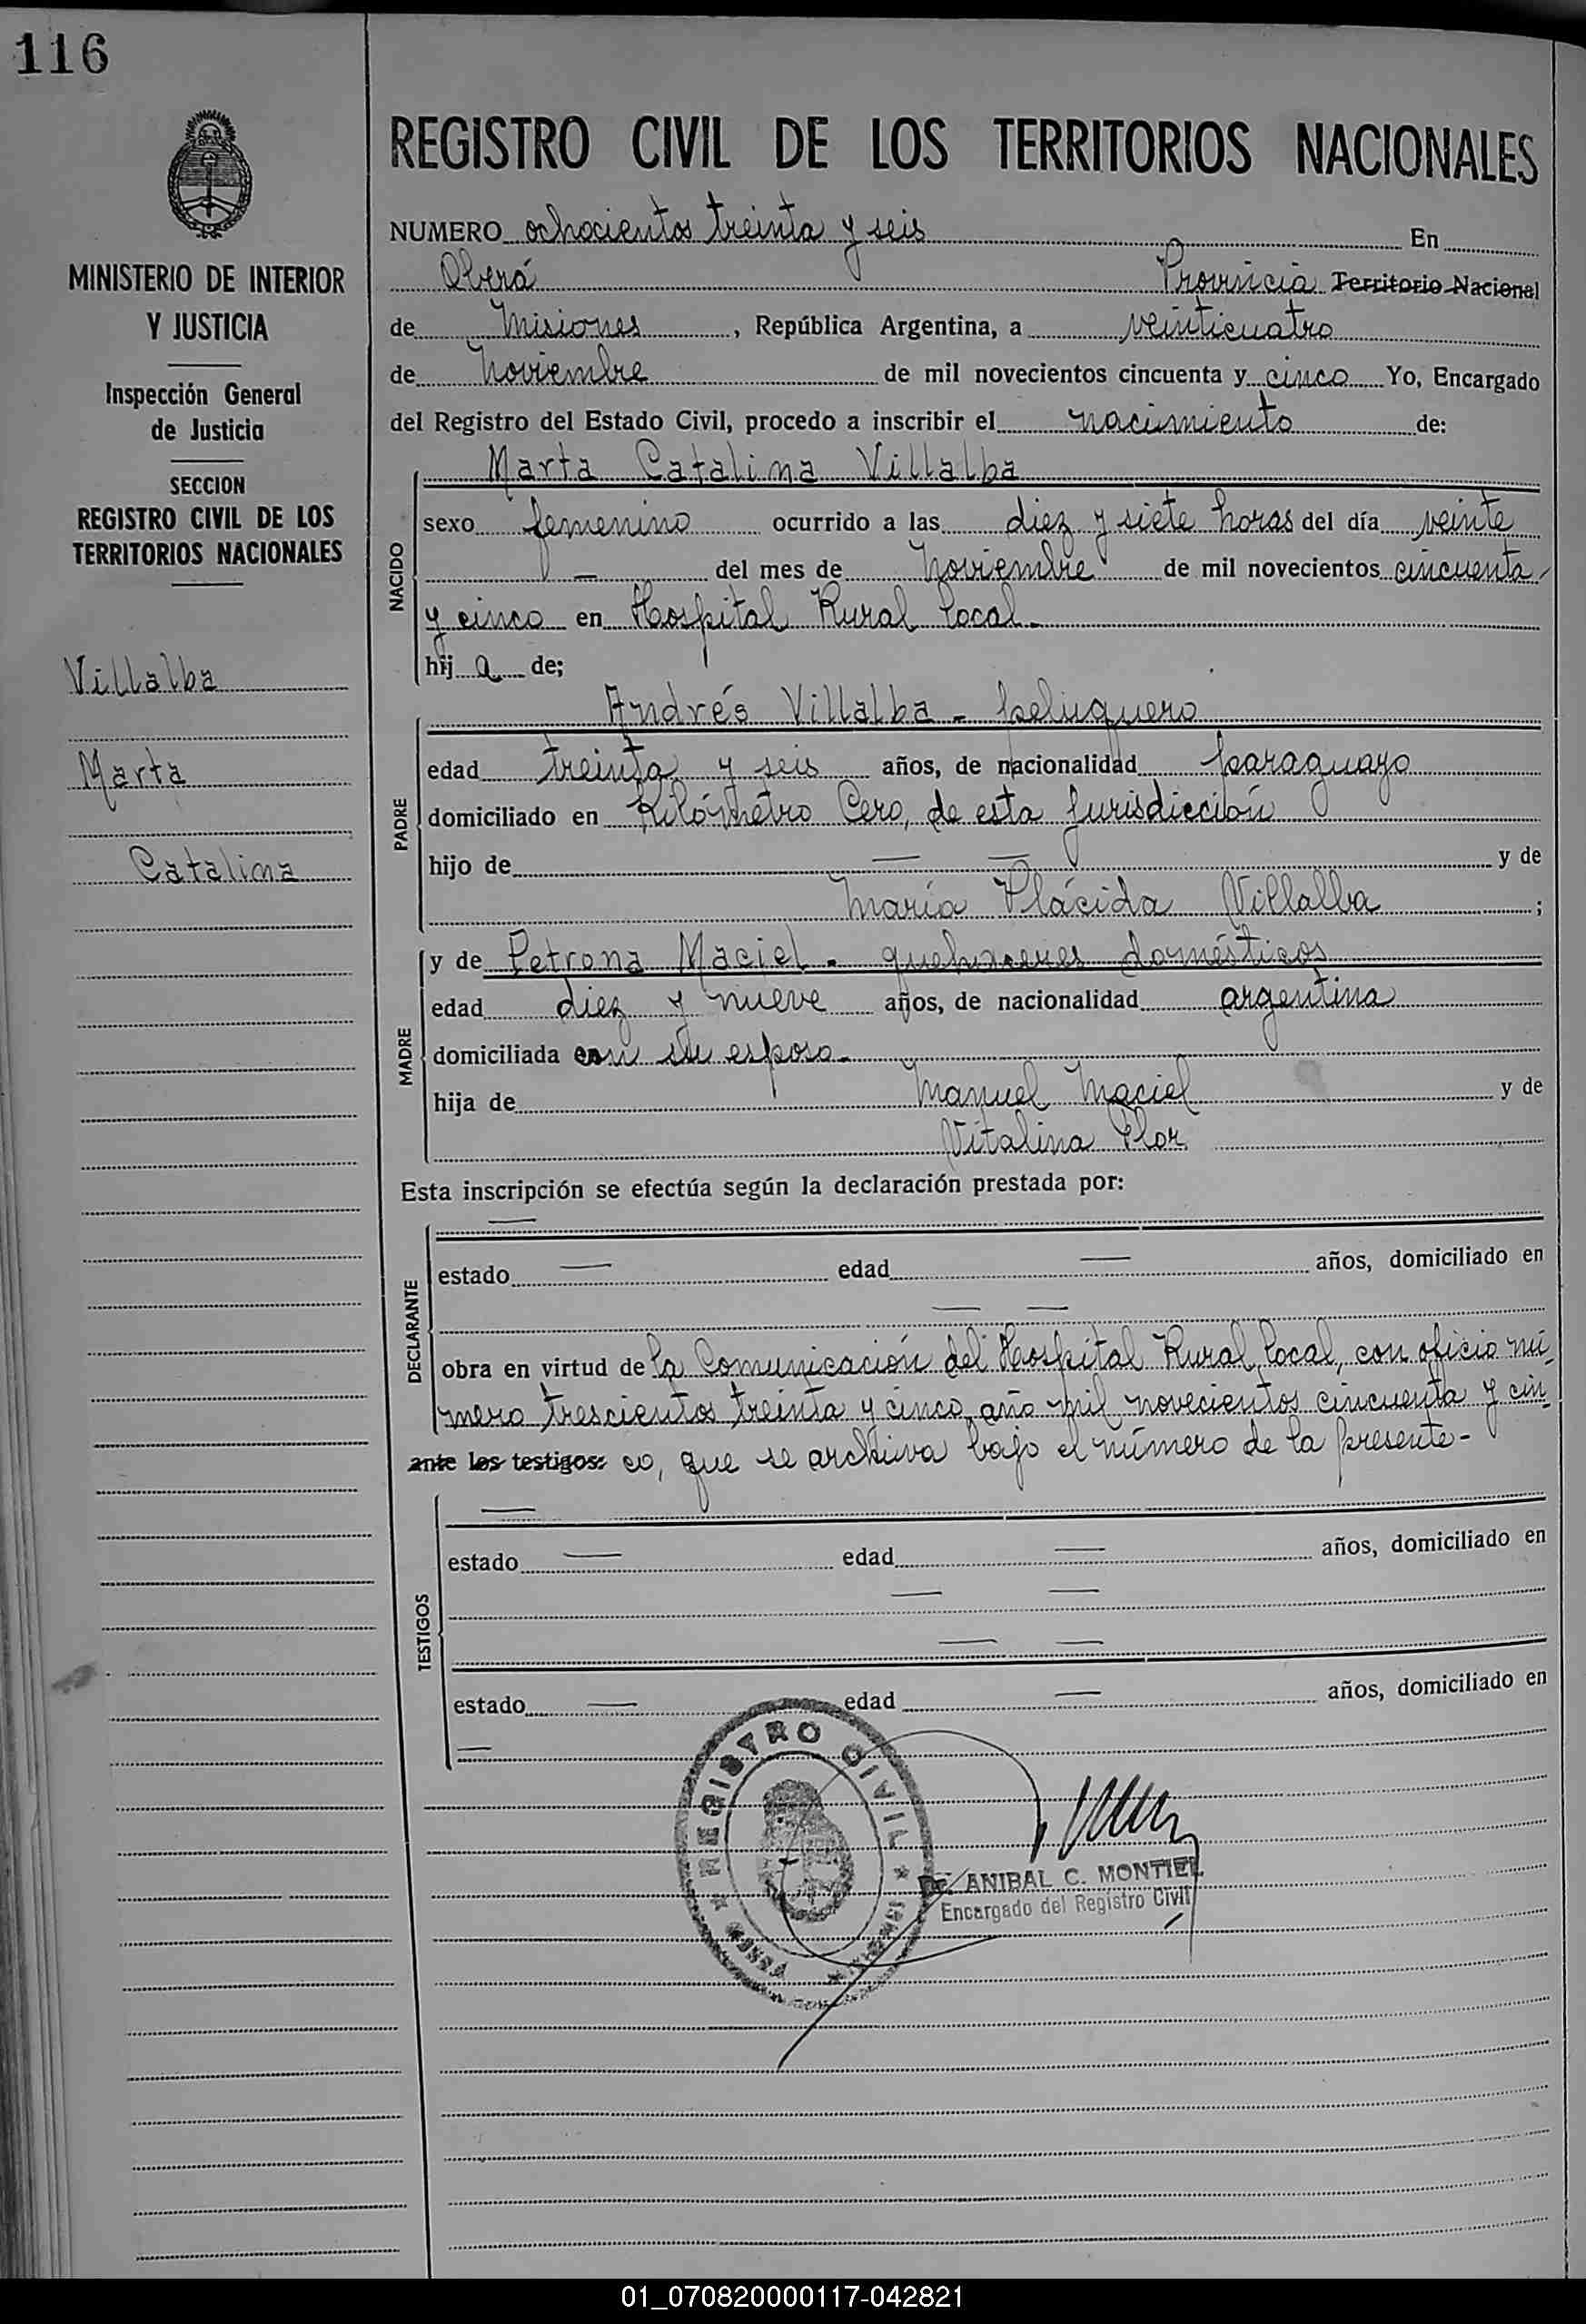 116
MINISTERIO DE INTERIOR
Y JUSTICIA
Inspección General
de Justicia
SECCION
REGISTRO CIVIL DE LOS
TERRITORIOS NACIONALES
Villalba
Marta
Catalina
REGISTRO CIVIL DE LOS TERRITORIOS NACIONALES
NUMERO ochocientos treinta y seis En
Oberá Provincia Territorio Nacional
de Misiones, República Argentina, a veinticuatro
de Noviembre de mil novecientos cincuenta y cinco Yo, Encargado
del Registro del Estado Civil, procedo a inscribir el nacimiento de:
Marta Catalina Villalba
NACIDO
sexo femenino ocurrido a las diez y siete horas del día veinte
— del mes de Noviembre de mil novecientos cincuenta
y cinco en Hospital Rural Local.
hij a de;
PADRE
Andrés Villalba - peluquero
edad treinta y seis años, de nacionalidad paraguayo
domiciliado en Kilómetro Cero, de esta Jurisdicción
hijo de — — y de
María Plácida Villalba ;
MADRE
y de Petrona Maciel - quehaceres domésticos
edad diez y nueve años, de nacionalidad argentina
domiciliada con su esposo.
hija de Manuel Maciel y de
Vitalina Flor
Esta inscripción se efectúa según la declaración prestada por:
DECLARANTE
—
estado — edad — años, domiciliado en
— —
obra en virtud de la Comunicación del Hospital Rural Local, con oficio nú-
mero trescientos treinta y cinco, año mil novecientos cincuenta y cin-
ante los testigos: co, que se archiva bajo el número de la presente-
TESTIGOS
—
estado — edad — años, domiciliado en
— —
— —
estado — edad — años, domiciliado en
—
REGISTRO CIVIL
Dr. ANIBAL C. MONTIEL
Encargado del Registro Civil
01_070820000117-042821